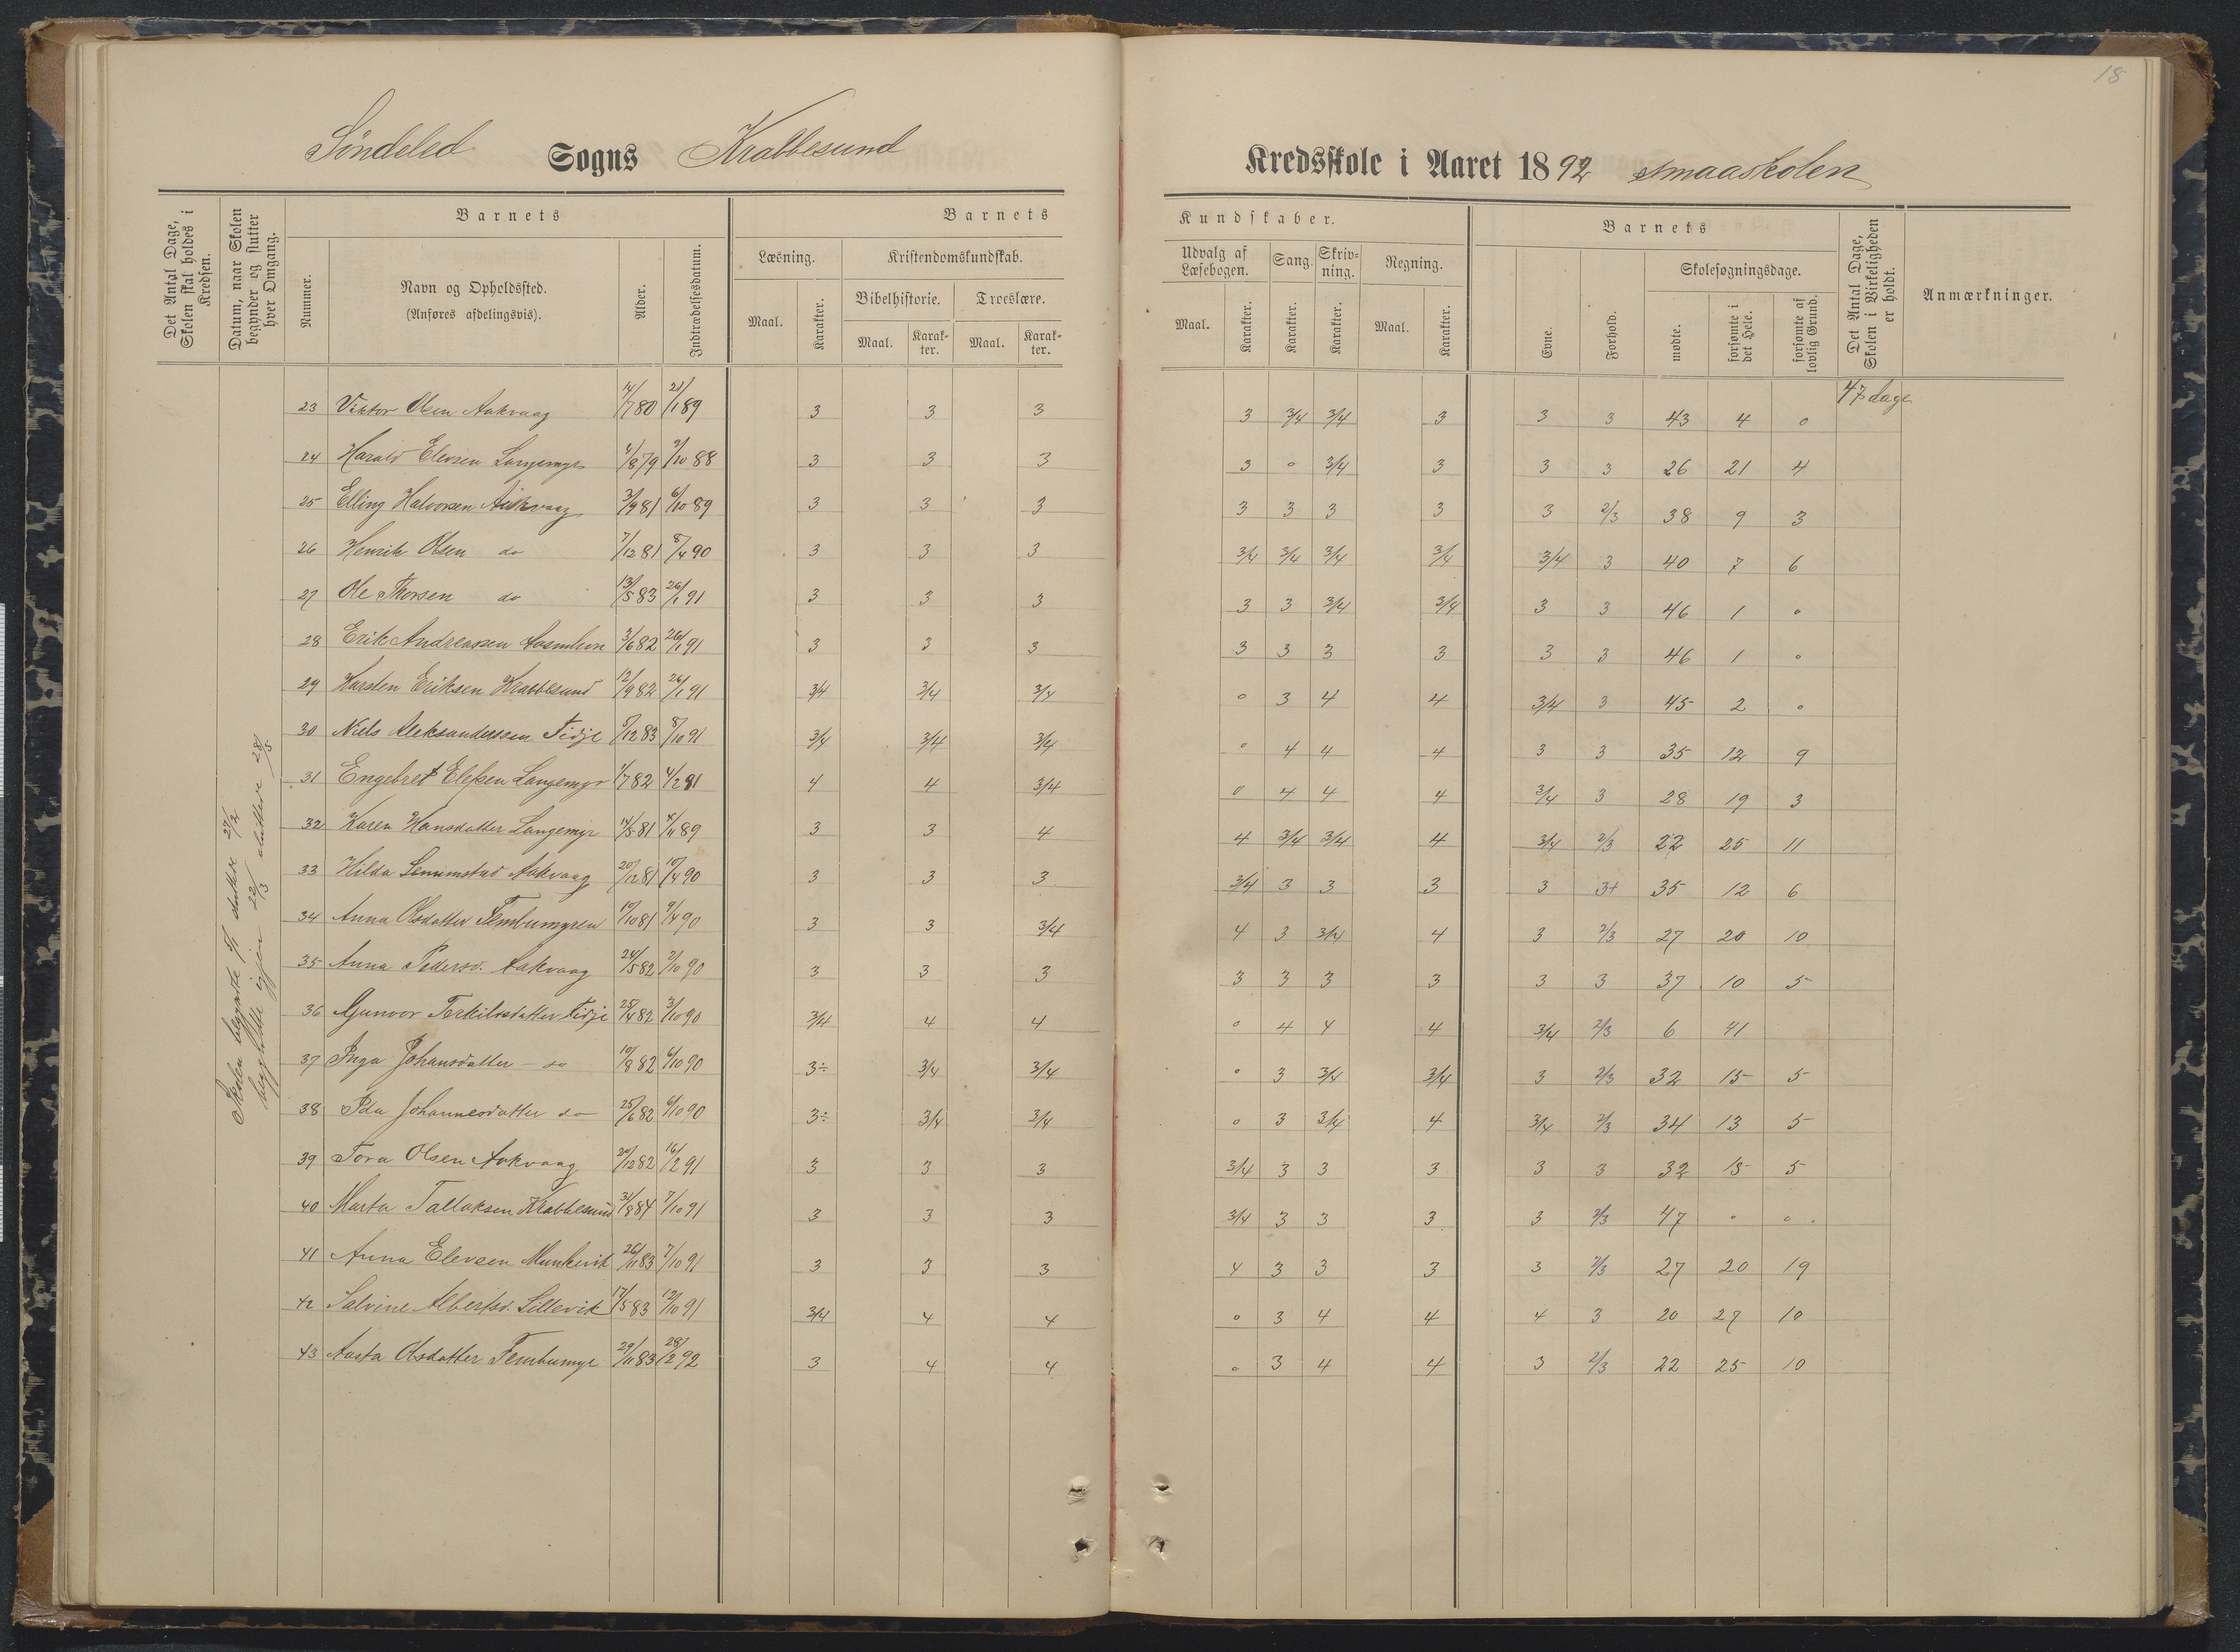 18
Søndeled Sogns Krabbesund Kredsskole i Aaret 1892 smaaskolen
Det Antal Dage, Skolen skal holdes i Kredsen.
Datum, naar Skolen begynder og slutter hver Omgang.
Barnets
Nummer.
Navn og Opholdssted.
(Anføres afdelingsvis).
Alder.
Indtrædelsesdatum.
Barnets Kundskaber.
Læsning.
Maal. Karakter.
Kristendomskundskab.
Bibelhistorie. Troeslære.
Maal. Karakter. Maal. Karakter.
Udvalg af Læsebogen.
Maal. Karakter.
Sang. Karakter.
Skrivning. Karakter.
Regning.
Maal. Karakter.
Barnets
Evne. Forhold.
Skolesøgningsdage.
mødte. forsømte i det Hele. forsømte af lovlig Grund.
Det Antal Dage, Skolen i Virkeligheden er holdt.
Anmærkninger.
47 dage
23 Viktor Olsen Aakvaag 14/7 80 21/1 89 3 3 3 3 3/4 3/4 3 3 3 43 4 0
24 Harald Elevsen Langemyr 4/8 79 9/10 88 3 3 3 3 0 3/4 3 3 3 26 21 4
25 Elling Halvorsen Aakvaag 3/9 81 6/10 89 3 3 3 3 3 3 3 3 2/3 38 9 3
26 Henrik Olsen do 7/12 81 8/4 90 3 3 3 3/4 3/4 3/4 3/4 3/4 3 40 7 6
27 Ole Thorsen do 13/5 83 26/1 91 3 3 3 3 3 3/4 3/4 3 3 46 1 0
28 Erik Andreassen 3/6 82 26/1 91 3 3 3 3 3 3 3 3 3 46 1 0
29 Karsten Eriksen Krabbesund 12/9 82 26/1 91 3/4 3/4 3/4 0 3 4 4 3/4 3 45 2 0
30 Niels Aleksanderssen Fidje 5/12 83 8/10 91 3/4 3/4 3/4 0 4 4 4 3 3 35 12 9
31 Engebret Elefsen Langemyr 1/7 82 4/2 91 4 4 3/4 0 4 4 4 3/4 3 28 19 3
32 Karen Hansdatter Langemyr 14/5 81 4/11 89 3 3 4 4 3/4 3/4 4 3/4 2/3 22 25 11
33 Hilda Aakvaag 20/12 81 10/4 90 3 3 3 3/4 3 3 3 3 3+ 35 12 6
34 Anna Olsdatter Fembumyren 19/10 81 9/4 90 3 3 3/4 4 3 3/4 4 3 2/3 27 20 10
35 Anna Pedersd. Aakvaag 24/5 82 2/10 90 3 3 3 3 3 3 3 3 3 37 10 5
36 Gunvor Terkildsdatter Fidje 25/4 82 3/10 90 3/4 4 4 0 4 4 4 3/4 2/3 6 41
37 Inga Johansdatter – do 10/8 82 6/10 90 3÷ 3/4 3/4 0 3 3/4 3/4 3 2/3 32 15 5
38 Ida Johannesdatter do 25/6 82 6/10 90 3÷ 3/4 3/4 0 3 3/4 4 3/4 2/3 34 13 5
39 Tora Olsen Aakvaag 20/12 82 16/2 91 3 3 3 3/4 3 3 3 3 3 32 15 5
40 Marta Tallaksen Krabbesund 31/8 84 7/10 91 3 3 3 3/4 3 3 3 3 2/3 47 0 0
41 Anna Elevsen Munkevik 26/11 83 7/10 91 3 3 3 4 3 3 3 3 2/3 27 20 19
42 Salvine Albertsd. Lillevik 17/5 83 12/10 91 3/4 4 4 0 3 4 4 4 3 20 27 10
43 Aasta Olsdatter Fembumyr 29/11 83 28/2 92 3 4 4 0 3 4 4 3 2/3 22 25 10
Skolen begyndte sluttet 27/2
begyndte igjen 22/3 sluttere 28/5